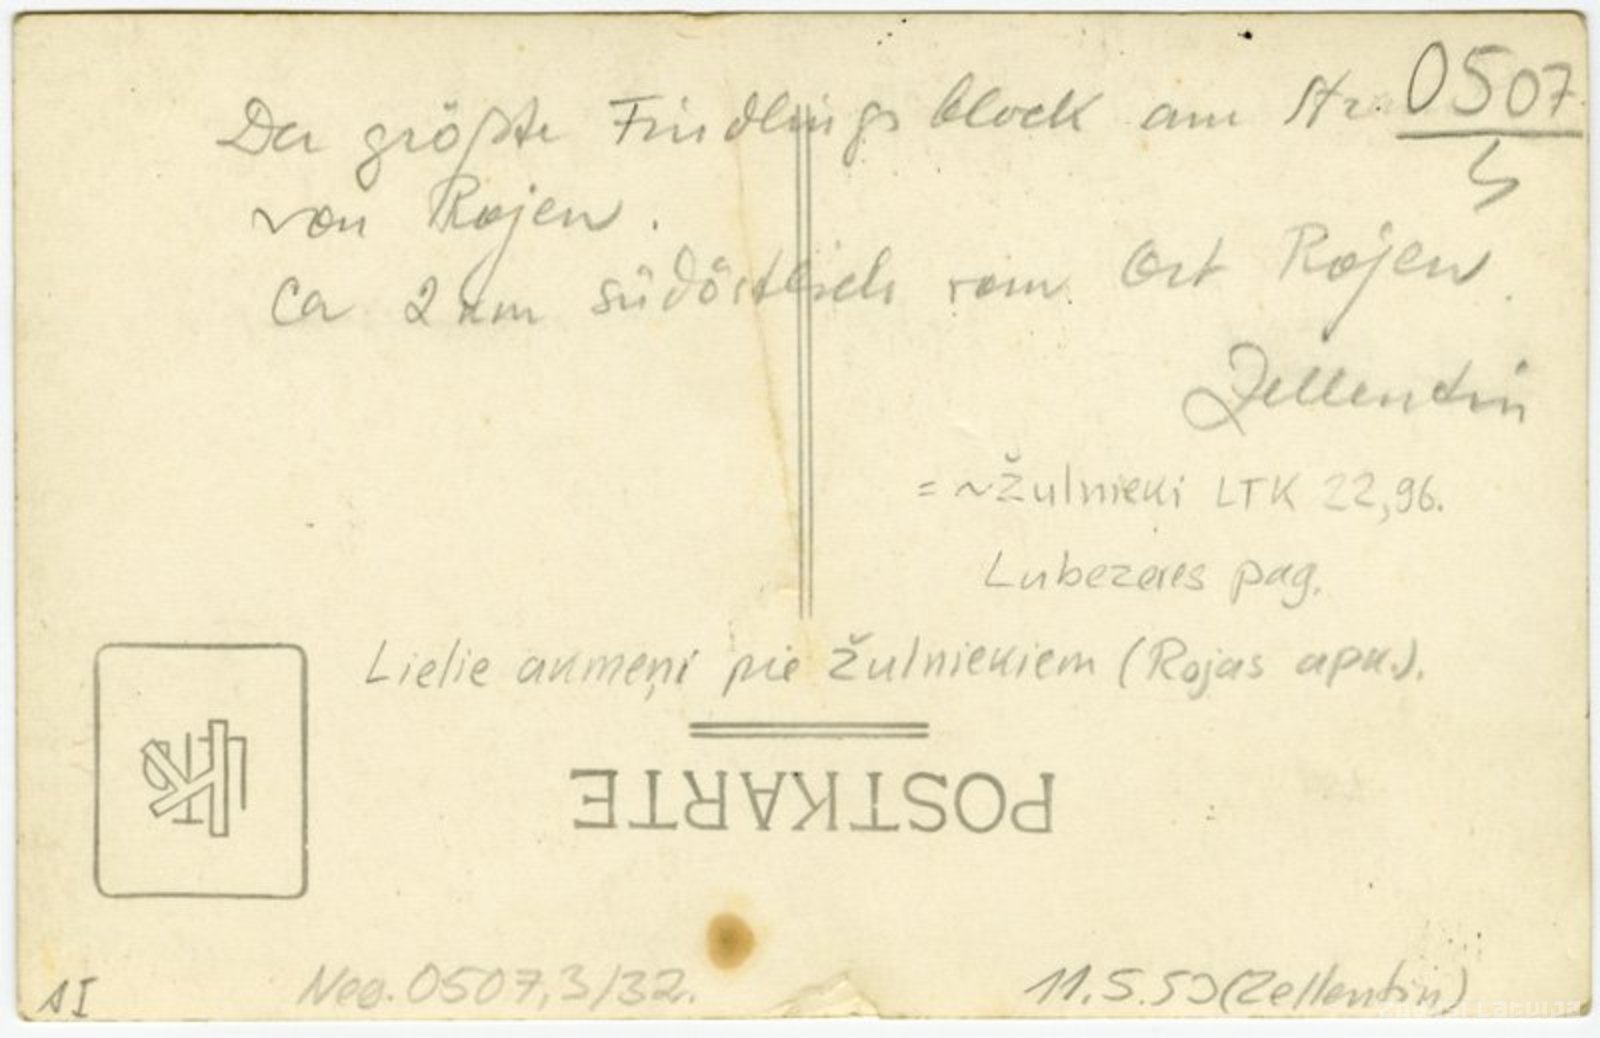 0507
Der größte Findlingsblock am
von Rojen.
Ca 2 km südöstlich vom Ort Rojen.
Zellentin
= ~Žulnieki LTK 22,96.
Lubezeres pag.
Lielie akmeņi pie Žulniekiem (Rojas apk.).
POSTKARTE
Neg. 0507, 3/32.
11.5.53 (Zellentin)
AI